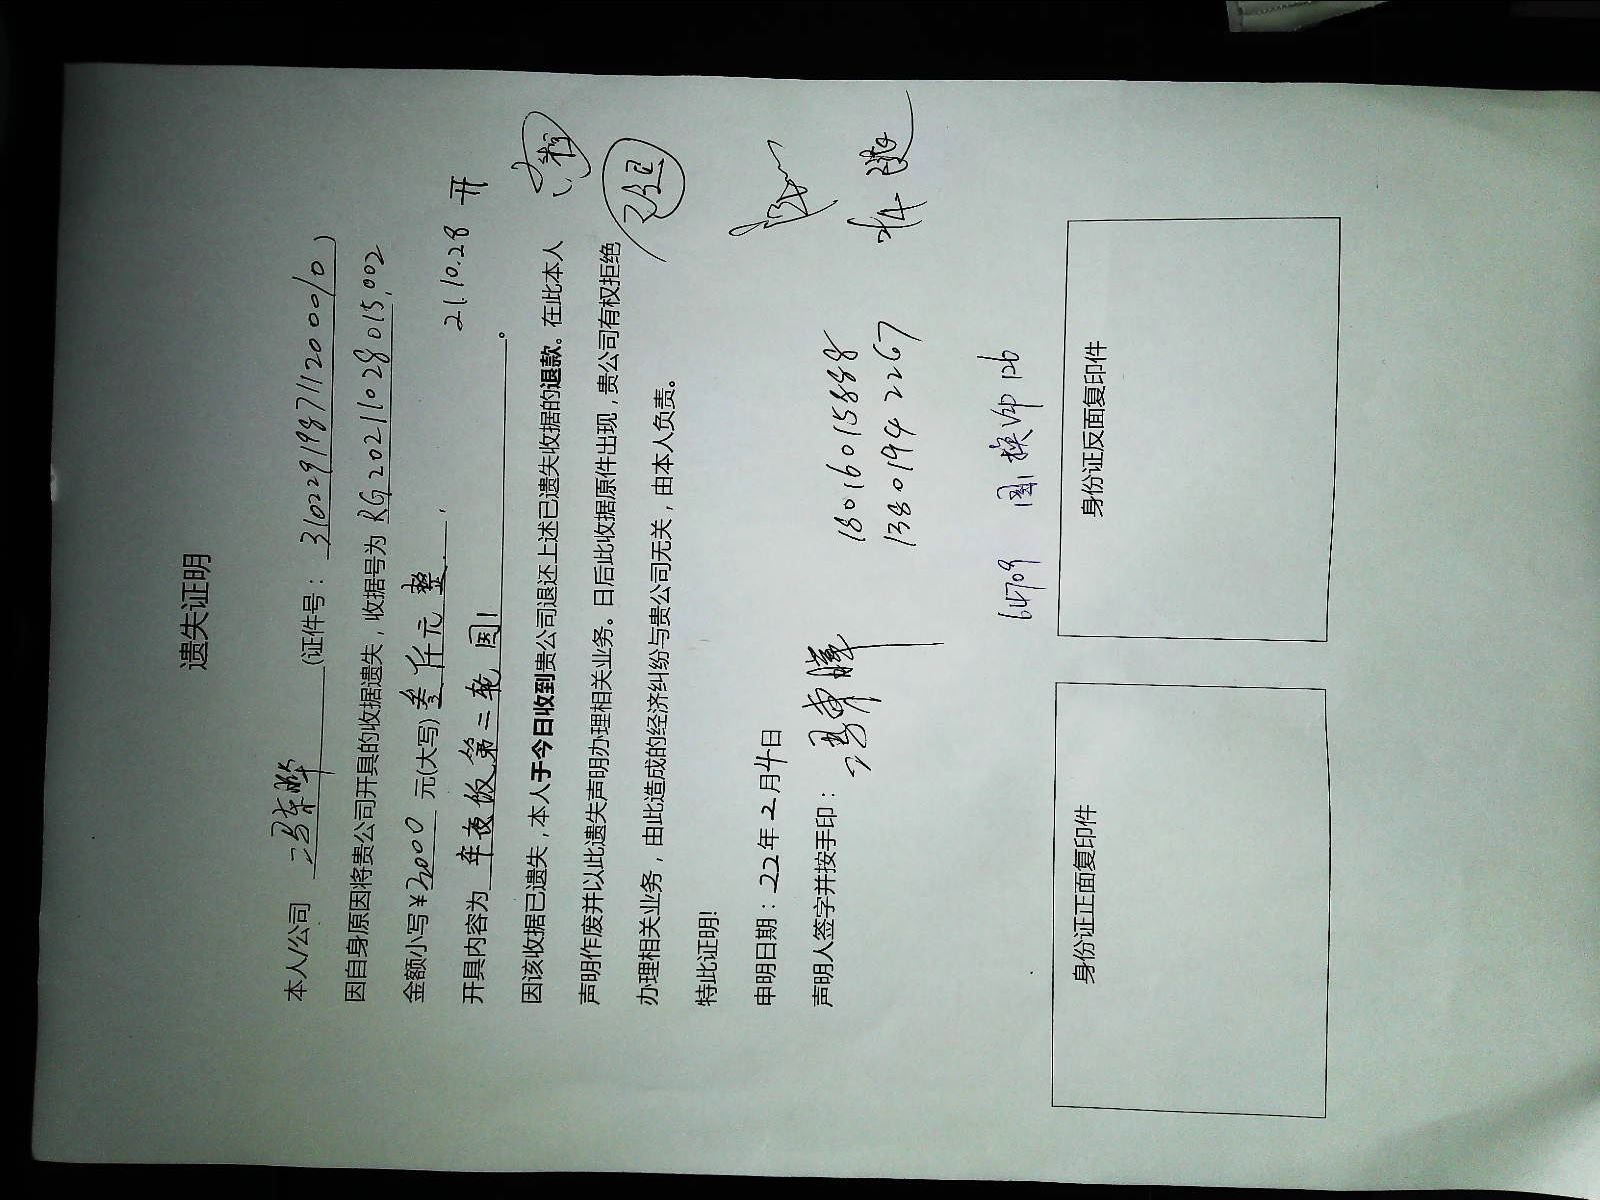 遗失证明
本人/公司 冯东晔 (证件号: 310229198711120010)
因自身原因将贵公司开具的收据遗失,收据号为 RG20211028015.002
金额小写¥3000 元(大写) 叁仟元整,
21.10.28 开
开具内容为 年夜饭第二轮 国1。
因该收据已遗失,本人于今日收到贵公司退还上述已遗失收据的退款。在此本人
声明作废并以此遗失声明办理相关业务。日后此收据原件出现,贵公司有权拒绝
办理相关业务,由此造成的经济纠纷与贵公司无关,由本人负责。
特此证明!
申明日期:22年2月4日
声明人签字并按手印:
18016015888
13801942267
64709
身份证正面复印件
身份证反面复印件